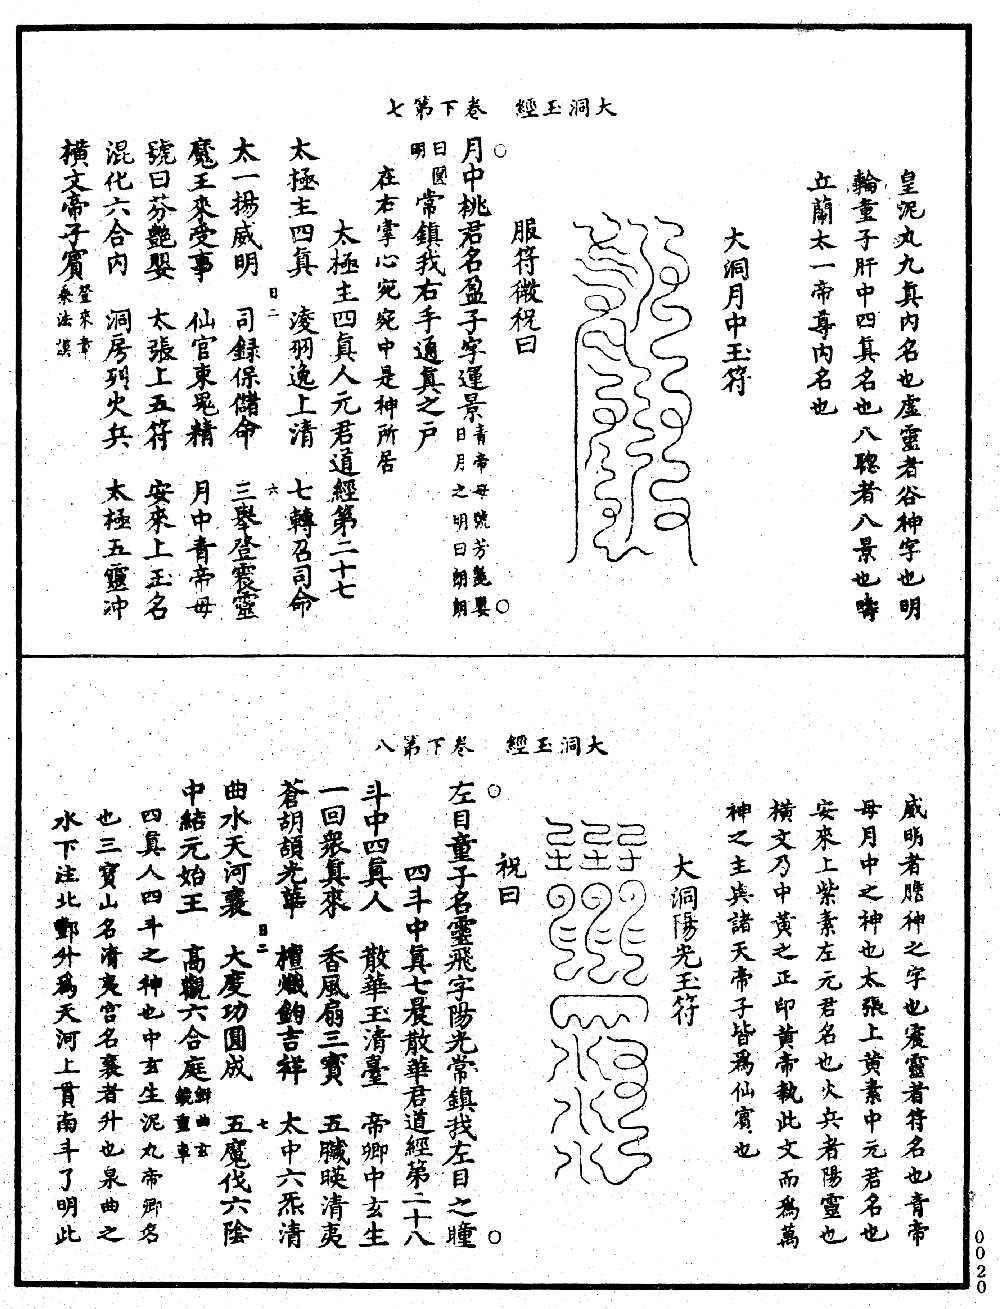 大洞玉經　卷下第七
皇泥丸九真內名也虛靈者谷神字也明
輪童子肝中四真名也八聰者八景也疇
丘蘭太一帝尊內名也
大洞月中玉符
服符微祝曰
○月中桃君名盈子字運景青帝母號芳艷嬰日月之明曰朗朗○
曰圓明常鎮我右手通真之戶
在右掌心宛宛中是神所居
太極主四真人元君道經第二十七
太極主四真　淩羽逸上清　七轉召司命
太一揚威明日二　司錄保儲命六　三舉登震靈
魔王來受事　仙官束鬼精　月中青帝母
號曰芬艷嬰　太張上五符　安來上玉名
混化六合內　洞房列火兵　太極五靈冲
橫文帝子賓
大洞玉經　卷下第八
威明者膽神之字也震靈者符名也青帝
母月中之神也太張上黃素中元君名也
安來上紫素左元君名也火兵者陽靈也
橫文乃中黃之正印黃帝執此文而為萬
神之主與諸天帝子皆為仙賓也
大洞陽光玉符
祝曰
○左目童子名靈飛字陽光常鎮我左目之瞳○
四斗中真七晨散華君道經第二十八
斗中四真人　散華玉清臺　帝卿中玄生
一回眾真來　香風扇三寶　五臟暎清夷
蒼胡頡光華　檀熾鉤吉祥　太中六炁清
曲水天河襄日二　大度功圓成七　五魔伐六陰
中結元始王　高觀六合庭
四真人四斗之神也中玄生泥丸帝卿名
也三寶山名清夷宮名襄者升也泉曲之
水下注北酆升為天河上貫南斗了明此
0020